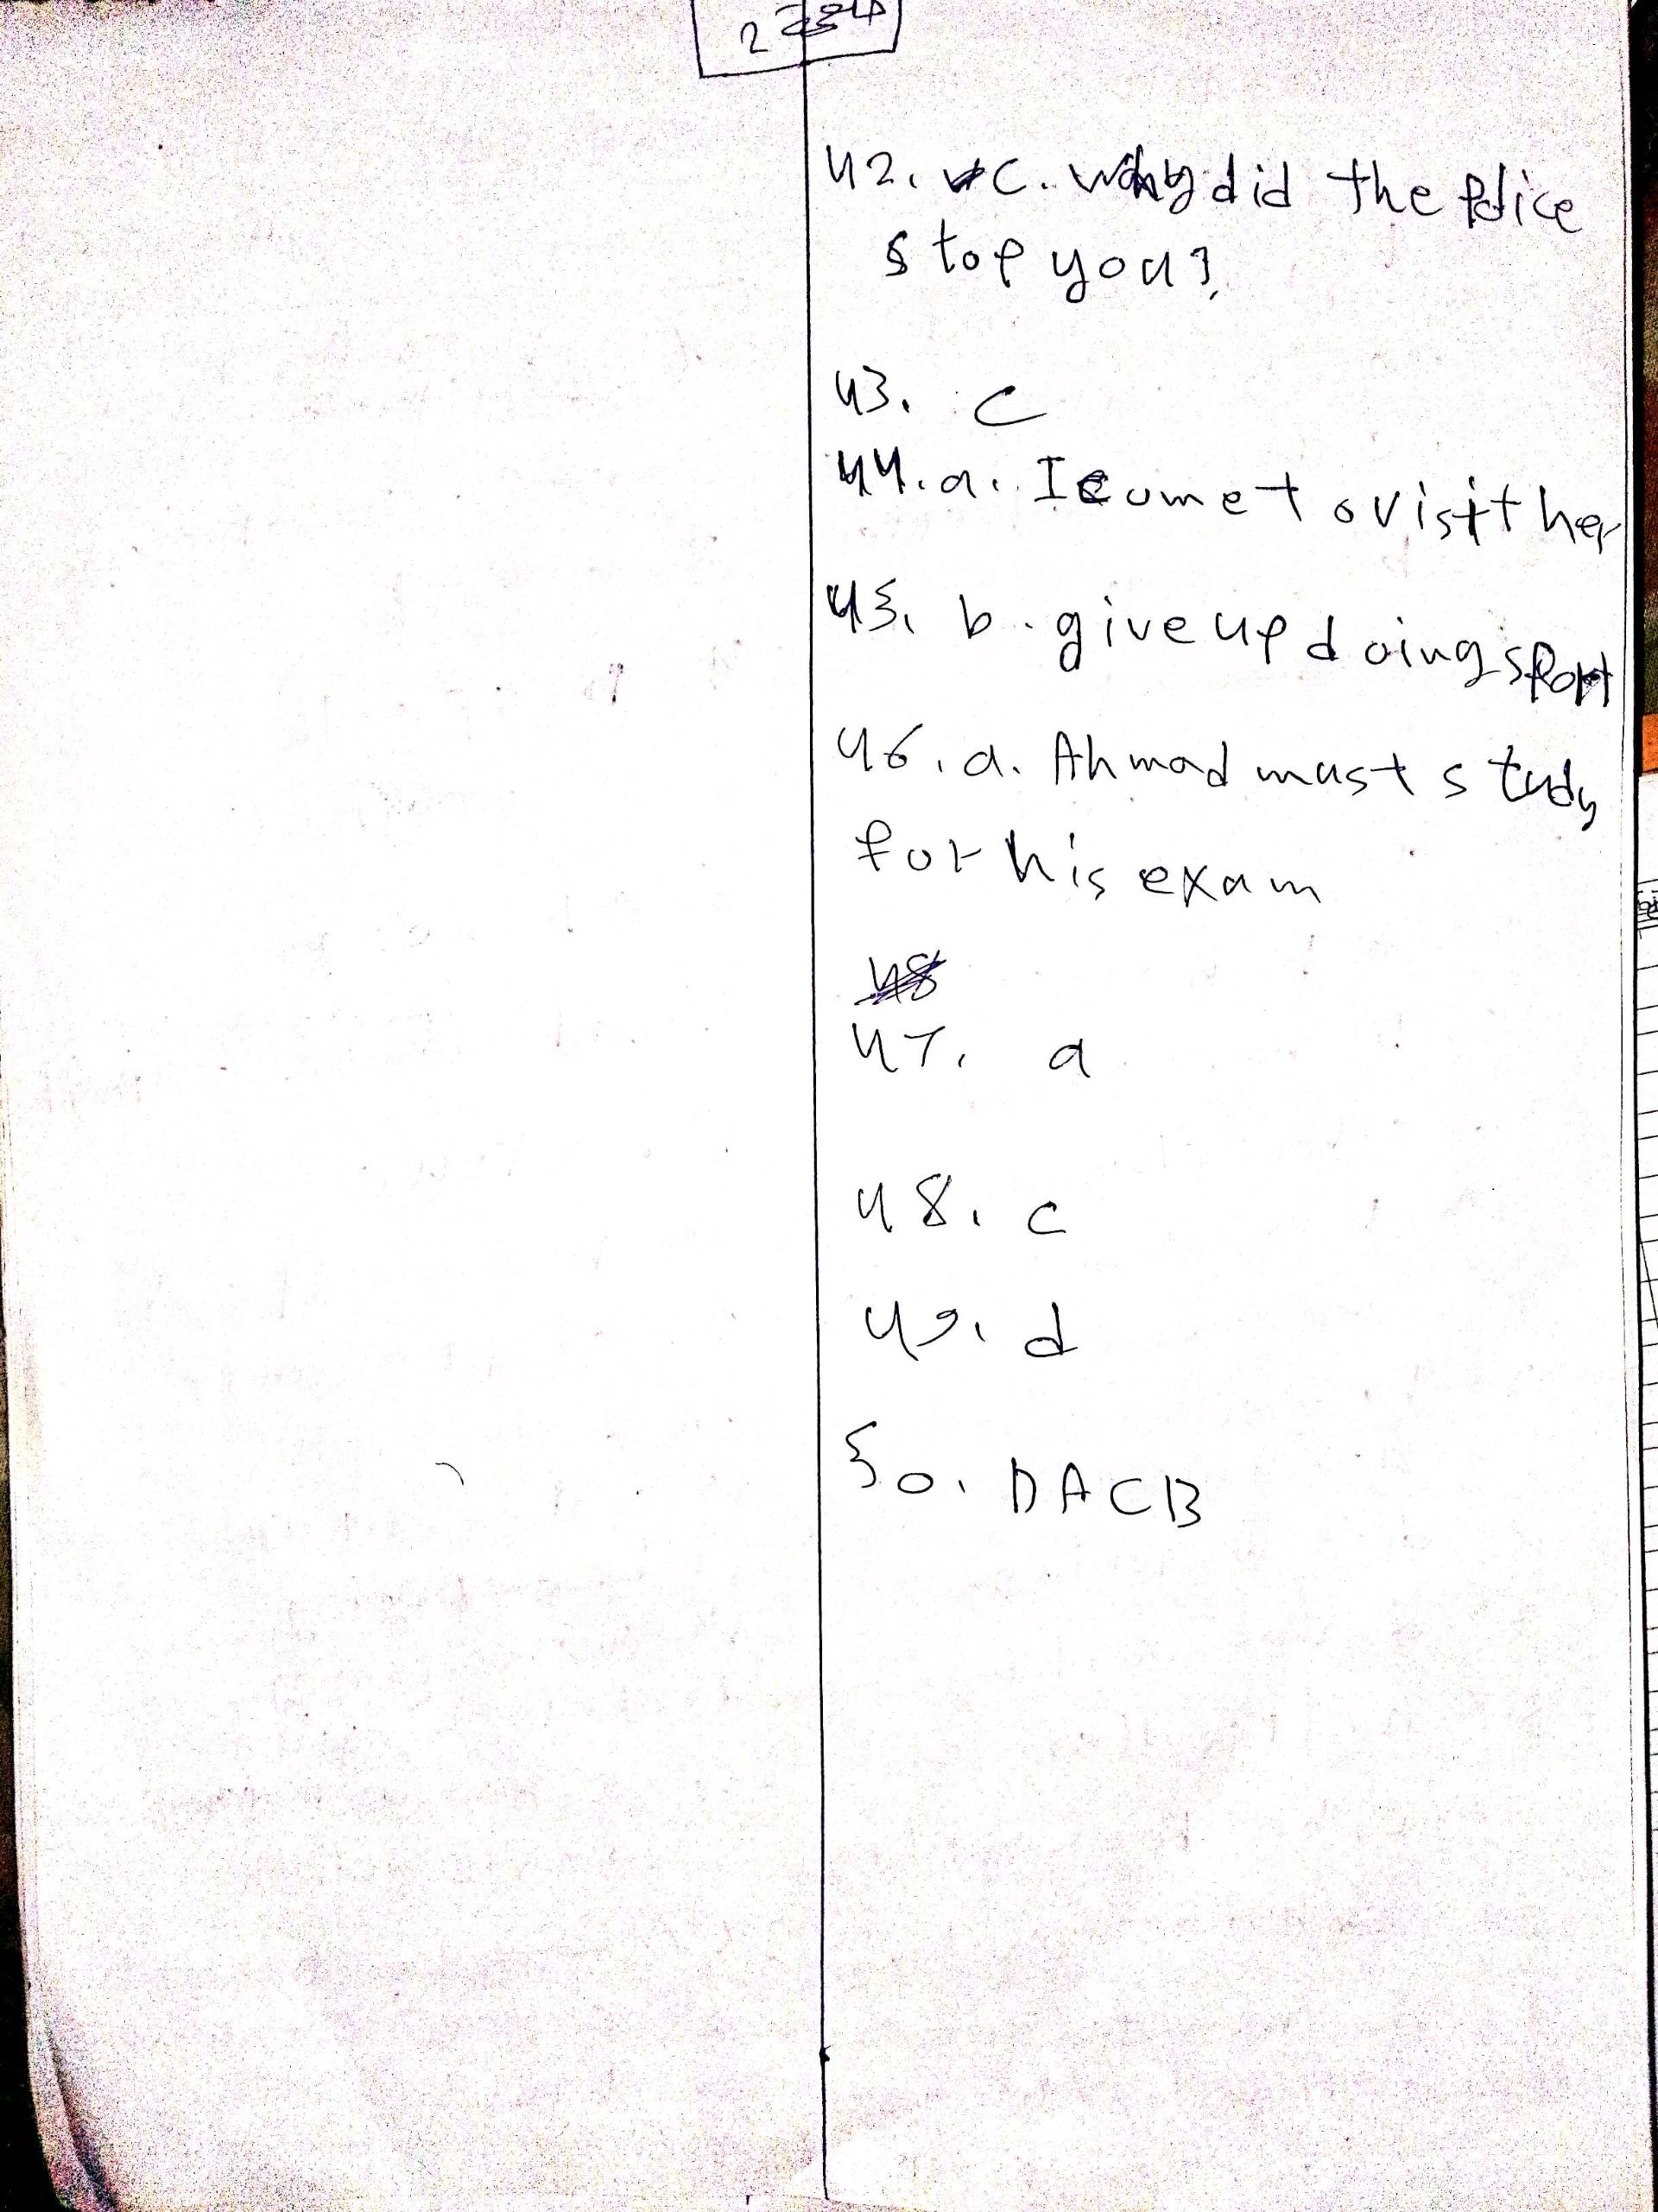 2
42. c. why did the police
stop you?
43. c
44. a. I come to visit her
45. b. give up doing sport
46. a. Ahmad must study
for his exam
48
47. a
48. c
49. d
50. DACB